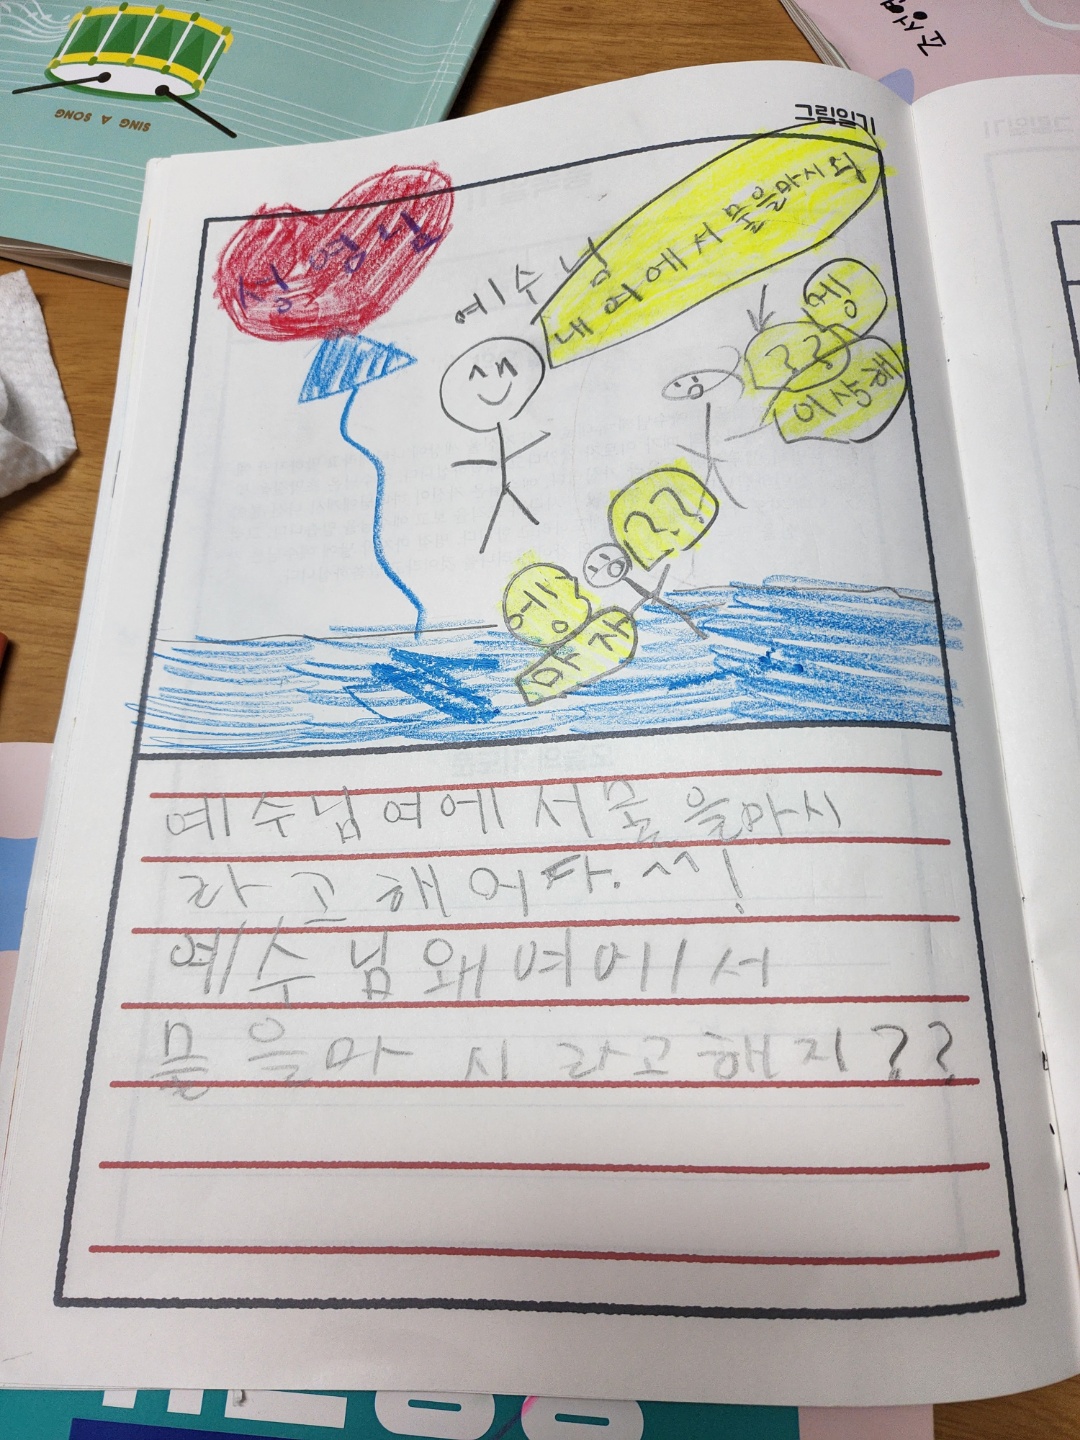 SING A SONG
그림일기
성령님
예수님
내 여에서 물을마시와
엥
??
이상해
??
엥
마자
예수님여에서물을마시
라고해어다.^^!
예수님왜여에서
믈을마시라고해지??